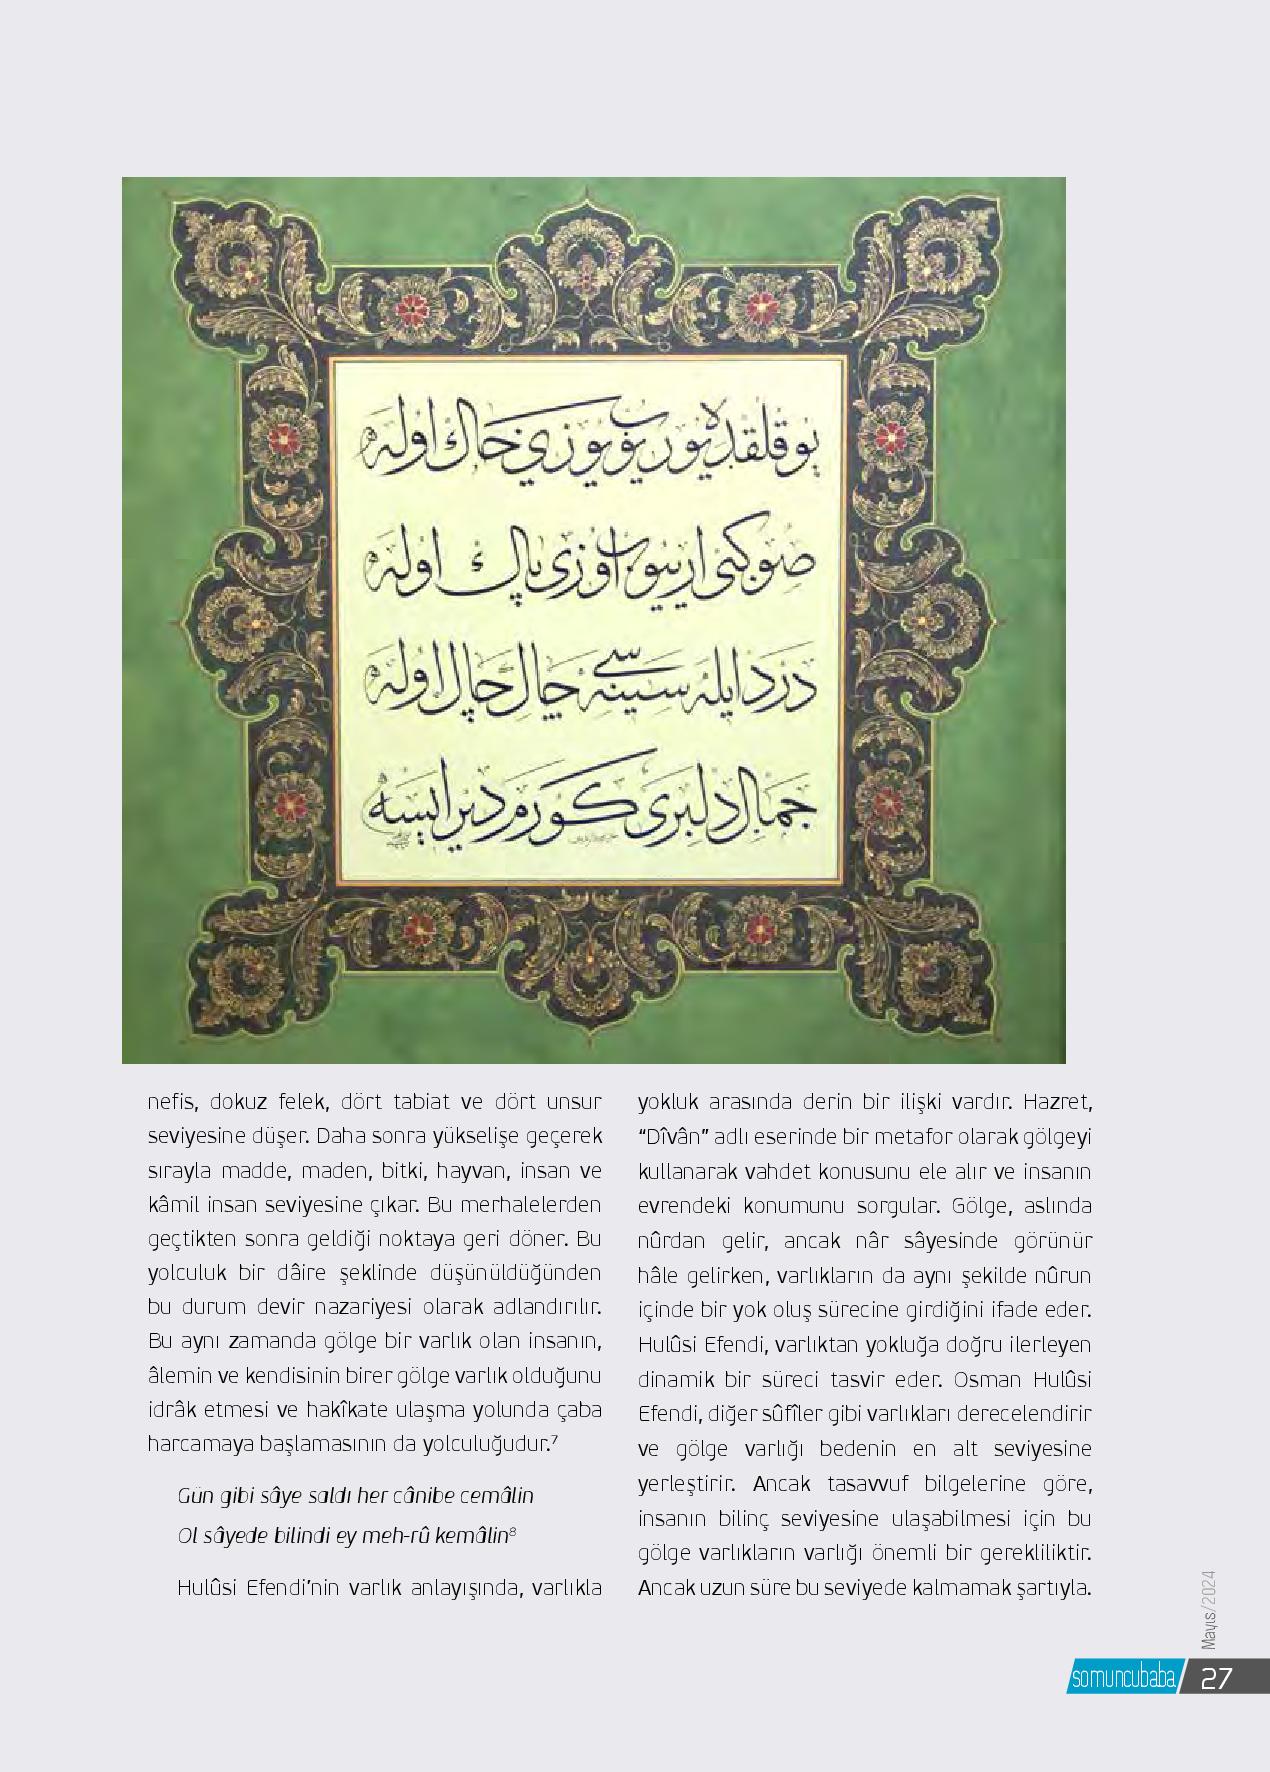 يوقلقده يوريوب يوزي خاك اوله
صو كبى ارييوب اوزى پاك اوله
درد ايله سينه سى چاك چاك اوله
جمال دلبرى كورم دير ايسه
nefis, dokuz felek, dört tabiat ve dört unsur
seviyesine düşer. Daha sonra yükselişe geçerek
sırayla madde, maden, bitki, hayvan, insan ve
kâmil insan seviyesine çıkar. Bu merhalelerden
geçtikten sonra geldiği noktaya geri döner. Bu
yolculuk bir dâire şeklinde düşünüldüğünden
bu durum devir nazariyesi olarak adlandırılır.
Bu aynı zamanda gölge bir varlık olan insanın,
âlemin ve kendisinin birer gölge varlık olduğunu
idrâk etmesi ve hakîkate ulaşma yolunda çaba
harcamaya başlamasının da yolculuğudur.⁷
Gün gibi sâye saldı her cânibe cemâlin
Ol sâyede bilindi ey meh-rû kemâlin⁸
Hulûsi Efendi’nin varlık anlayışında, varlıkla
yokluk arasında derin bir ilişki vardır. Hazret,
“Dîvân” adlı eserinde bir metafor olarak gölgeyi
kullanarak vahdet konusunu ele alır ve insanın
evrendeki konumunu sorgular. Gölge, aslında
nûrdan gelir, ancak nâr sâyesinde görünür
hâle gelirken, varlıkların da aynı şekilde nûrun
içinde bir yok oluş sürecine girdiğini ifade eder.
Hulûsi Efendi, varlıktan yokluğa doğru ilerleyen
dinamik bir süreci tasvir eder. Osman Hulûsi
Efendi, diğer sûfîler gibi varlıkları derecelendirir
ve gölge varlığı bedenin en alt seviyesine
yerleştirir. Ancak tasavvuf bilgelerine göre,
insanın bilinç seviyesine ulaşabilmesi için bu
gölge varlıkların varlığı önemli bir gerekliliktir.
Ancak uzun süre bu seviyede kalmamak şartıyla.
Mayıs/2024
somuncubaba 27